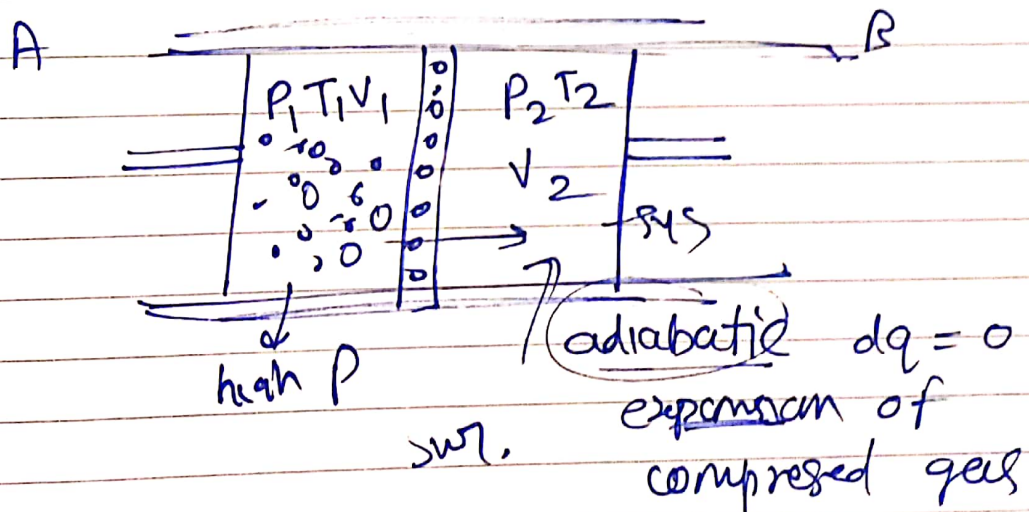 A B
P₁T₁V₁ P₂T₂
V₂
sys
high P
adiabatic dq = 0
expansion of
sur.
compresed gas